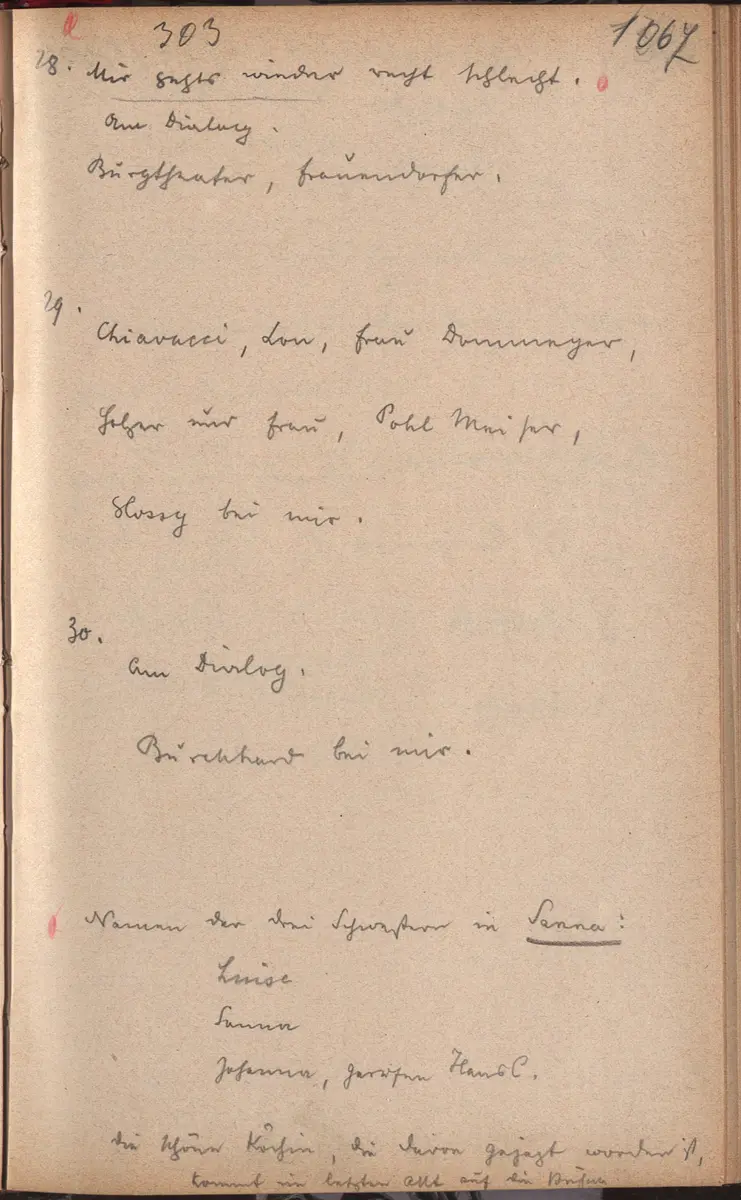 303
1067
28. Mir gehts wieder recht schlecht.
Am Dialog.
Burgtheater, Frauendorfer.
29.
Chiavacci, Lou, Frau Dommayer,
Holzer und Frau, Pohl Meiser,
Glossy bei mir.
30.
Am Dialog.
Burckhard bei mir.
Namen der drei Schwestern in Sanna:
Luise
Sanna
Johanna, gerufen Hansl.
die schöne Köchin, die davon gejagt worden ist,
kommt im letzten Akt auf die Bühne